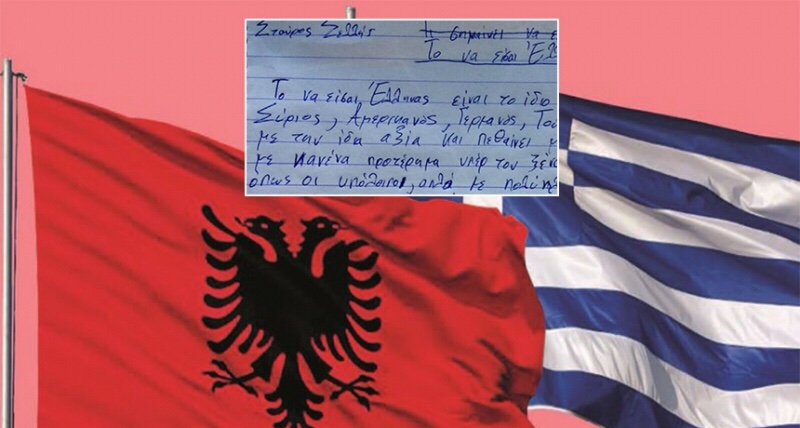 Σταύρος Σελλής τι σημαίνει να ε
Το να είσαι Έλλ
Το να είσαι Έλληνας είναι το ίδιο
Σύριος, Αμερικανος, Γερμανος, Του
με την ίδια αξία και πεθαίνει μ
με κανένα προτέραμα υπέρ του ξένο
οπως οι υπόλοιποι, αλλά με πολύ